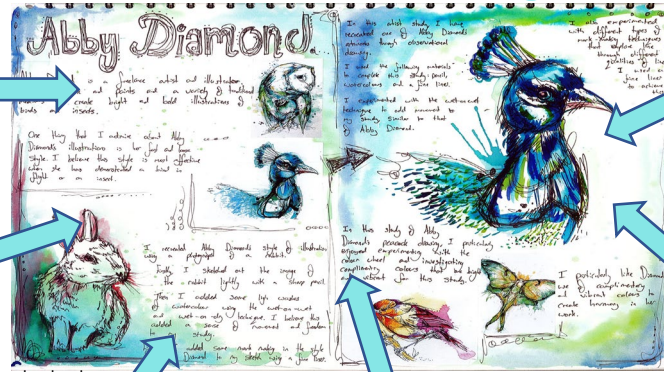 Abby Diamond.
is a freelance artist and illustrator
and paints and a variety of traditional
create bright and bold illustrations of
birds and insects.
One thing that I admire about Abby
Diamonds illustrations is her fast and loose
style. I believe this style is most effective
when she has demonstrated a bird in
flight or an insect.
I recreated Abby Diamonds style of illustration
using a photograph of a rabbit.
Firstly I sketched out the image of
the rabbit lightly with a sharp pencil.
Then I added some light washes
of watercolour using wet-on-wet
and wet-on-dry technique. I believe this
added a sense of movement and freedom
to my study.
added some mark making in the style
Diamond to my sketch using a fine liner.
In this artist study I have
recreated one of Abby Diamonds
through observational
drawing.
I used the following materials to
complete this study: pencil,
watercolours and a fine liner.
I experimented with the wet-on-wet
technique to add movement to
my study similar to that
of Abby Diamond.
In this study of Abby
Diamonds peacock drawing, I particularly
enjoyed experimenting with the
colour wheel and investigating
complimentary colours that are bright
and vibrant for this study.
I also experimented
with different types of
mark-making techniques
that explore line
through different
qualities of line
I used a
fine liner
to achieve
I particularly like Diamonds
use of complimentary
and vibrant colours to
create harmony in her
work.